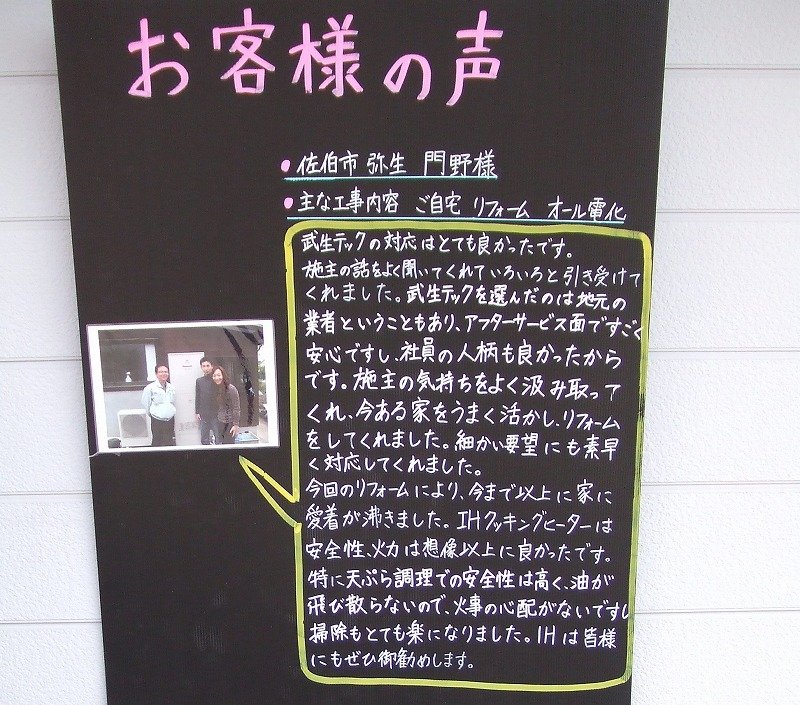 お客様の声
・佐伯市 弥生 門野様
・主な工事内容 ご自宅 リフォーム オール電化
武生テックの対応はとても良かったです。
施主の話をよく聞いてくれていろいろと引き受けて
くれました。武生テックを選んだのは地元の
業者ということもあり、アフターサービス面ですごく
安心ですし、社員の人柄も良かったから
です。施主の気持ちをよく汲み取って
くれ、今ある家をうまく活かし、リフォーム
をしてくれました。細かい要望にも素早
く対応してくれました。
今回のリフォームにより、今まで以上に家に
愛着が沸きました。IHクッキングヒーターは
安全性、火力は想像以上に良かったです。
特に天ぷら調理での安全性は高く、油が
飛び散らないので、火事の心配がないですし
掃除もとても楽になりました。IHは皆様
にもぜひ御勧めします。